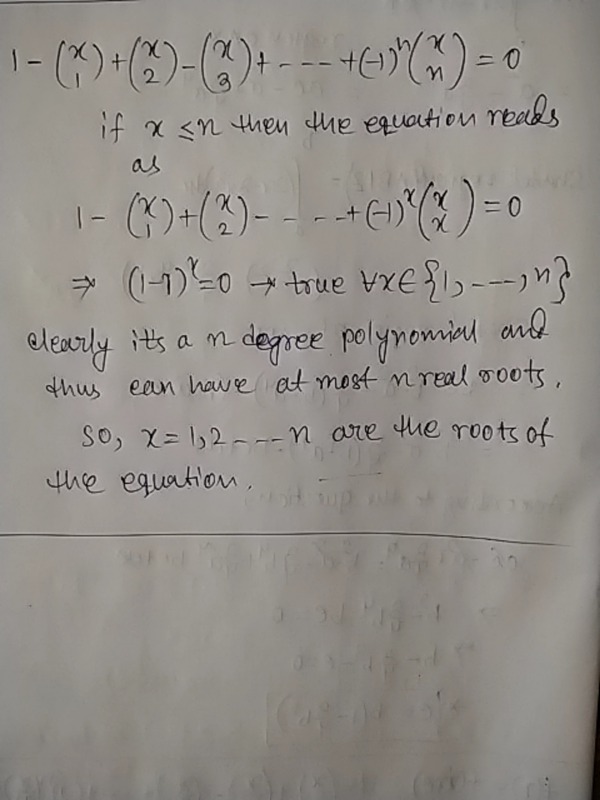 1 - (x 1) + (x 2) - (x 3) + ---- + (-1)^n (x n) = 0
if x ≤ n then the equation reads
as
1 - (x 1) + (x 2) - - - - - + (-1)^x (x x) = 0
⇒ (1-1)^x = 0 → true ∀x∈{1, ---, n}
clearly it's a n degree polynomial and
thus can have at most n real roots.
so, x = 1,2 ---- n are the roots of
the equation.